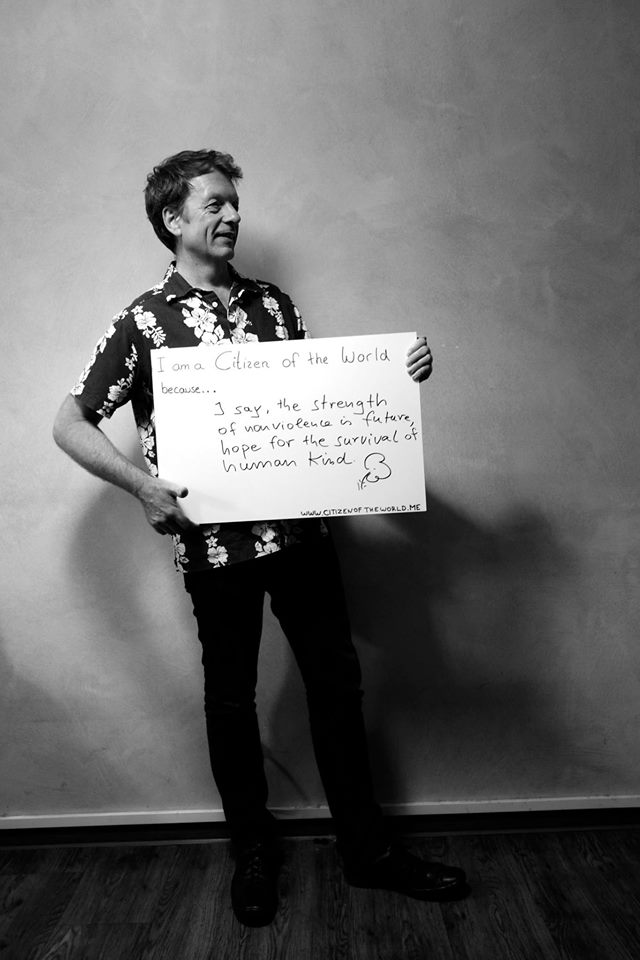 I am a Citizen of the World
because...
I say, the strength
of nonviolence in future,
hope for the survival of
human kind.
WWW.CITIZENOFTHEWORLD.ME